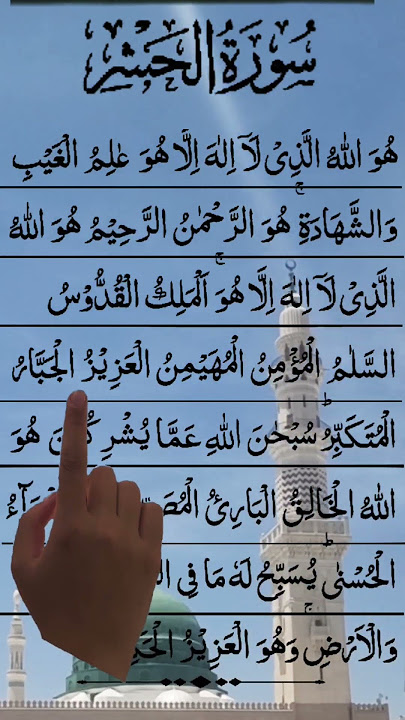 سُورَةُ الْحَشْرِ
هُوَ اللّٰهُ الَّذِیْ لَاۤ اِلٰهَ اِلَّا هُوَ عٰلِمُ الْغَیْبِ
وَالشَّهَادَةِ هُوَ الرَّحْمٰنُ الرَّحِیْمُ هُوَ اللّٰهُ
الَّذِیْ لَاۤ اِلٰهَ اِلَّا هُوَ اَلْمَلِكُ الْقُدُّوْسُ
السَّلٰمُ الْمُؤْمِنُ الْمُهَیْمِنُ الْعَزِیْزُ الْجَبَّارُ
الْمُتَكَبِّرُ سُبْحٰنَ اللّٰهِ عَمَّا هُوَ
اللّٰهُ الْخَالِقُ الْبَارِئُ
الْحُسْنٰی یُسَبِّحُ لَهٗ مَا فِی
وَالْاَرْضِ وَهُوَ الْعَزِیْزُ